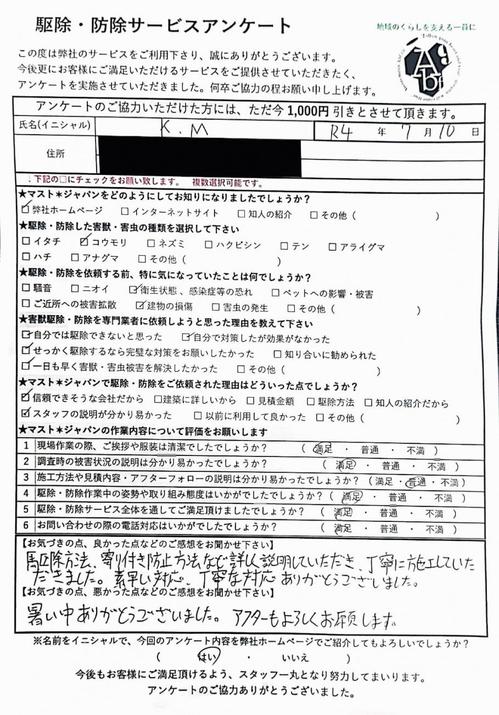 駆除・防除サービスアンケート
地域のくらしを支える一員に
この度は弊社のサービスをご利用下さり、誠にありがとうございます。
今後更にお客様にご満足いただけるサービスをご提供させていただきたく、
アンケートを実施させていただきました。何卒ご協力の程お願い申し上げます。
アンケートのご協力いただけた方には、ただ今1,000円引きとさせて頂きます。
氏名(イニシャル) K.M R4年7月10日
住所
：下記の□にチェックをお願い致します。 複数選択可能です。
★マスト＊ジャパンをどのようにしてお知りになりましたでしょうか？
☑弊社ホームページ □インターネットサイト □知人の紹介 □その他（ ）
★駆除・防除した害獣・害虫の種類を選択して下さい
□イタチ ☑コウモリ □ネズミ □ハクビシン □テン □アライグマ
□ハチ □アナグマ □その他（ ）
★駆除・防除を依頼する前、特に気になっていたことは何でしょうか？
□騒音 □ニオイ ☑衛生状態、感染症等の恐れ □ペットへの影響・被害
□ご近所への被害拡散 ☑建物の損傷 □害虫の発生 □その他（ ）
★害獣駆除・防除を専門業者に依頼しようと思った理由を教えて下さい
☑自分では駆除できないと思った ☑自分で対策したが効果がなかった
☑せっかく駆除するなら完璧な対策をお願いしたかった □知り合いに勧められた
☑一日も早く害獣・害虫被害を解決したかった □その他（ ）
★マスト＊ジャパンで駆除・防除をご依頼された理由はどういった点でしょうか？
☑信頼できそうな会社だから □建築に詳しいから □見積金額 □駆除方法 □知人の紹介だから
☑スタッフの説明が分かり易かった □以前に利用して良かった □その他（ ）
★マスト＊ジャパンの作業内容について評価をお願いします
1 現場作業の際、ご挨拶や服装は清潔でしたでしょうか？（満足・普通・不満）
2 調査時の被害状況の説明は分かり易かったでしょうか？（満足・普通・不満）
3 施工方法や見積内容・アフターフォローの説明は分かり易かったでしょうか？（満足・普通・不満）
4 駆除・防除作業中の姿勢や取り組み態度はいかがでしたでしょうか？（満足・普通・不満）
5 駆除・防除サービス全体を通してご満足頂けましたでしょうか？（満足・普通・不満）
6 お問い合わせの際の電話対応はいかがでしたでしょうか？（満足・普通・不満）
【お気づきの点、良かった点などのご感想をお聞かせ下さい】
駆除方法、寄り付き防止方法など詳しく説明していただき、丁寧に施工していた
だきました。素早い対応、丁寧な対応ありがとうございました。
【お気づきの点、悪かった点などのご感想をお聞かせ下さい】
暑い中ありがとうございました。アフターもよろしくお願します。
※名前をイニシャルで、今回のアンケート内容を弊社ホームページでご紹介してもよろしいでしょうか？
（ はい ・ いいえ ）
今後もお客様にご満足頂けるよう、スタッフ一丸となり努力してまいります。
アンケートのご協力ありがとうございました。